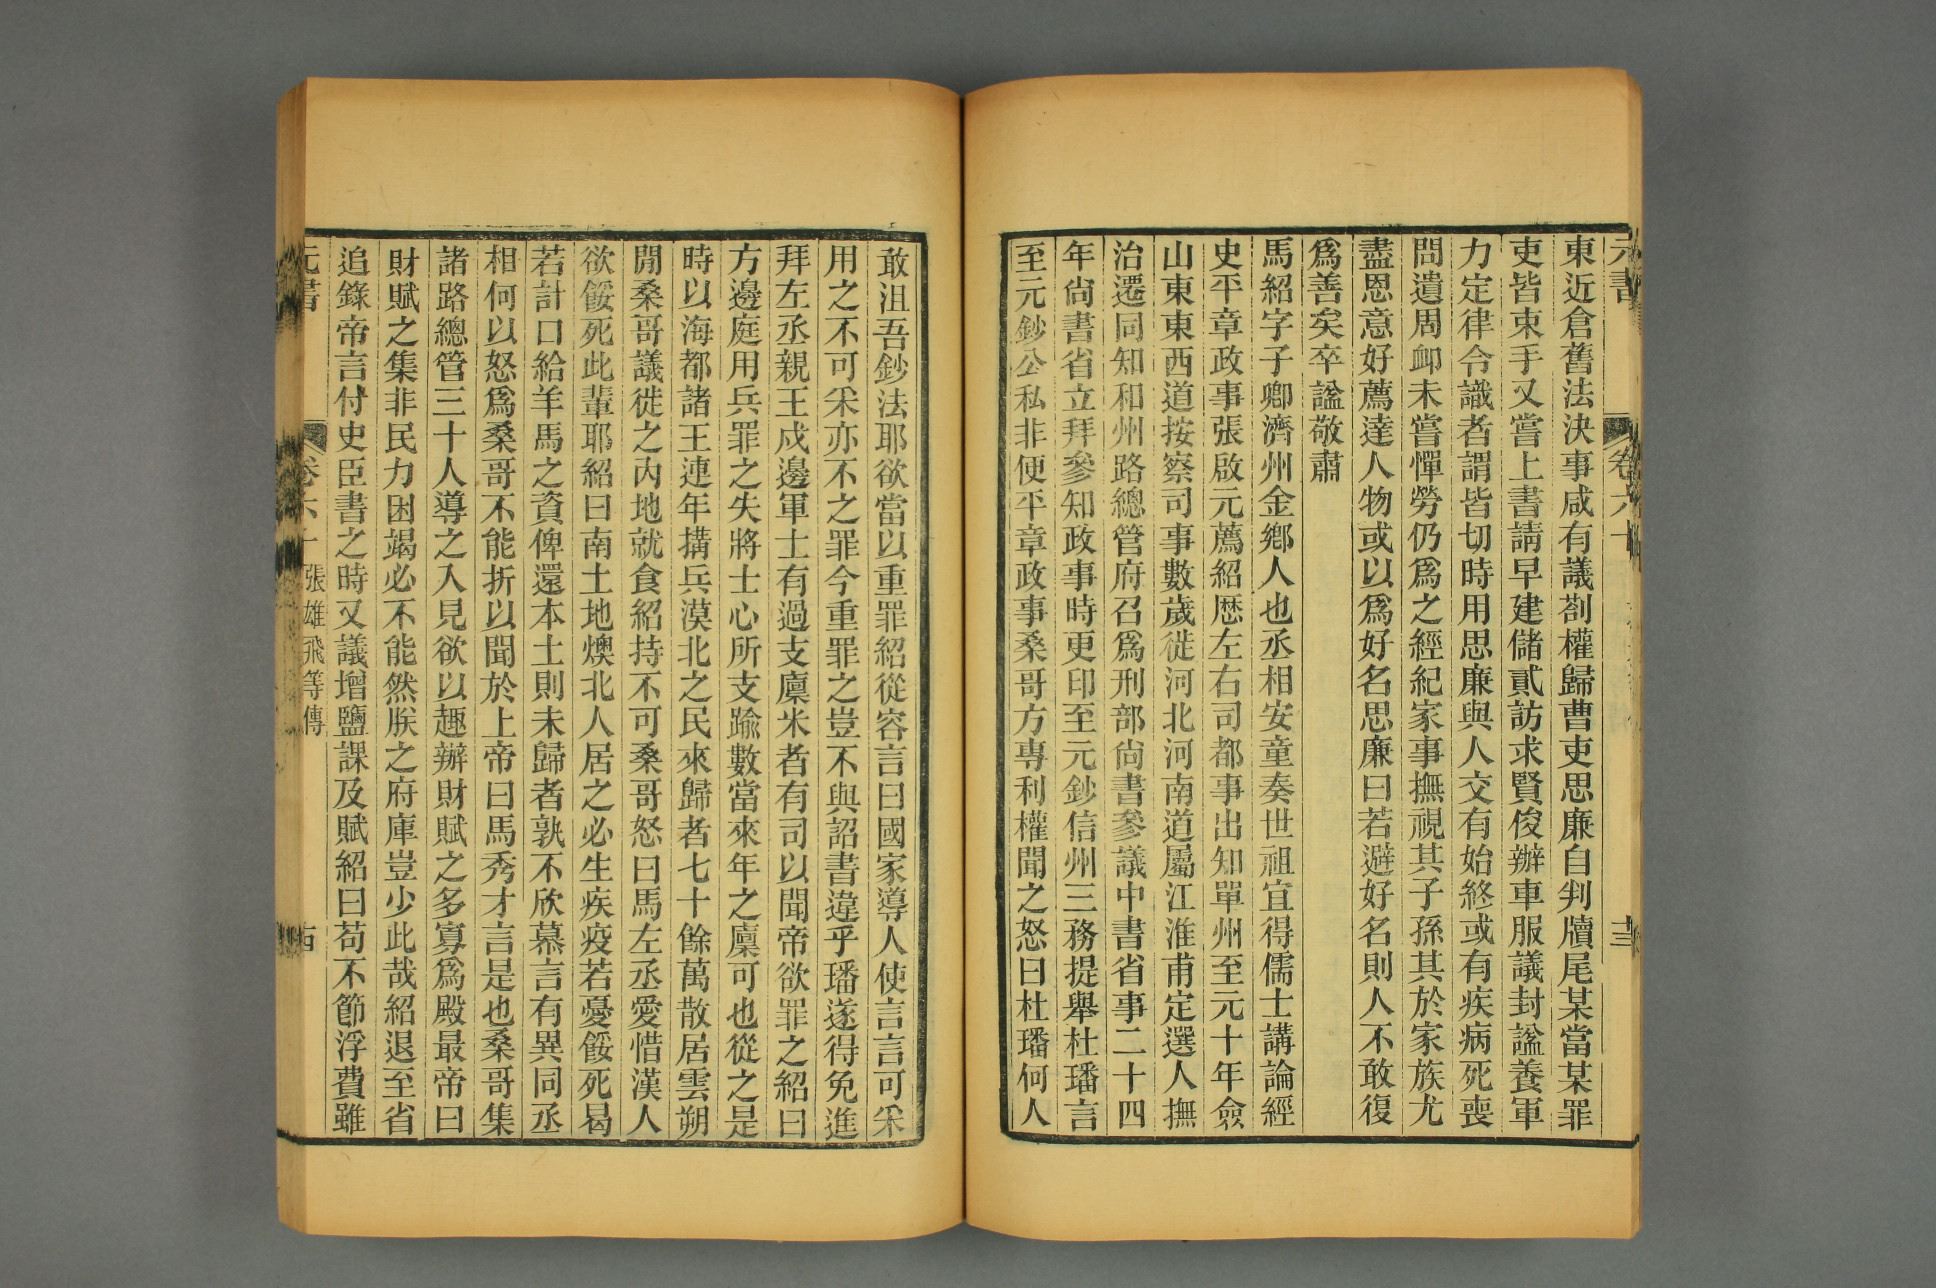 元書
卷六十
十三
東近倉舊法決事咸有議劄權歸曹吏思廉自判牘尾某當某罪
吏皆束手又嘗上書請早建儲貳訪求賢俊辦車服議封諡養軍
力定律令識者謂皆切時用思廉與人交有始終或有疾病死喪
問遺周卹未嘗憚勞仍爲之經紀家事撫視其子孫其於家族尤
盡恩意好薦達人物或以爲好名思廉曰若避好名則人不敢復
爲善矣卒諡敬肅
馬紹字子卿濟州金鄉人也丞相安童奏世祖宜得儒士講論經
史平章政事張啟元薦紹歷左右司都事出知單州至元十年僉
山東東西道按察司事數歲徙河北河南道屬江淮甫定選人撫
治遷同知和州路總管府召爲刑部尙書參議中書省事二十四
年尙書省立拜參知政事時更印至元鈔信州三務提舉杜璠言
至元鈔公私非便平章政事桑哥方專利權聞之怒曰杜璠何人
敢沮吾鈔法耶欲當以重罪紹從容言曰國家導人使言言可采
用之不可采亦不之罪今重罪之豈不與詔書違乎璠遂得免進
拜左丞親王戍邊軍士有過支廩米者有司以聞帝欲罪之紹曰
方邊庭用兵罪之失將士心所支踰數當來年之廩可也從之是
時以海都諸王連年搆兵漠北之民來歸者七十餘萬散居雲朔
閒桑哥議徙之內地就食紹持不可桑哥怒曰馬左丞愛惜漢人
欲餒死此輩耶紹曰南土地燠北人居之必生疾疫若憂餒死曷
若計口給羊馬之資俾還本土則未歸者孰不欣慕言有異同丞
相何以怒爲桑哥不能折以聞於上帝曰馬秀才言是也桑哥集
諸路總管三十人導之入見欲以趣辦財賦之多寡爲殿最帝曰
財賦之集非民力困竭必不能然朕之府庫豈少此哉紹退至省
追錄帝言付史臣書之時又議增鹽課及賦紹曰苟不節浮費雖
元書
卷六十 張雄飛等傳